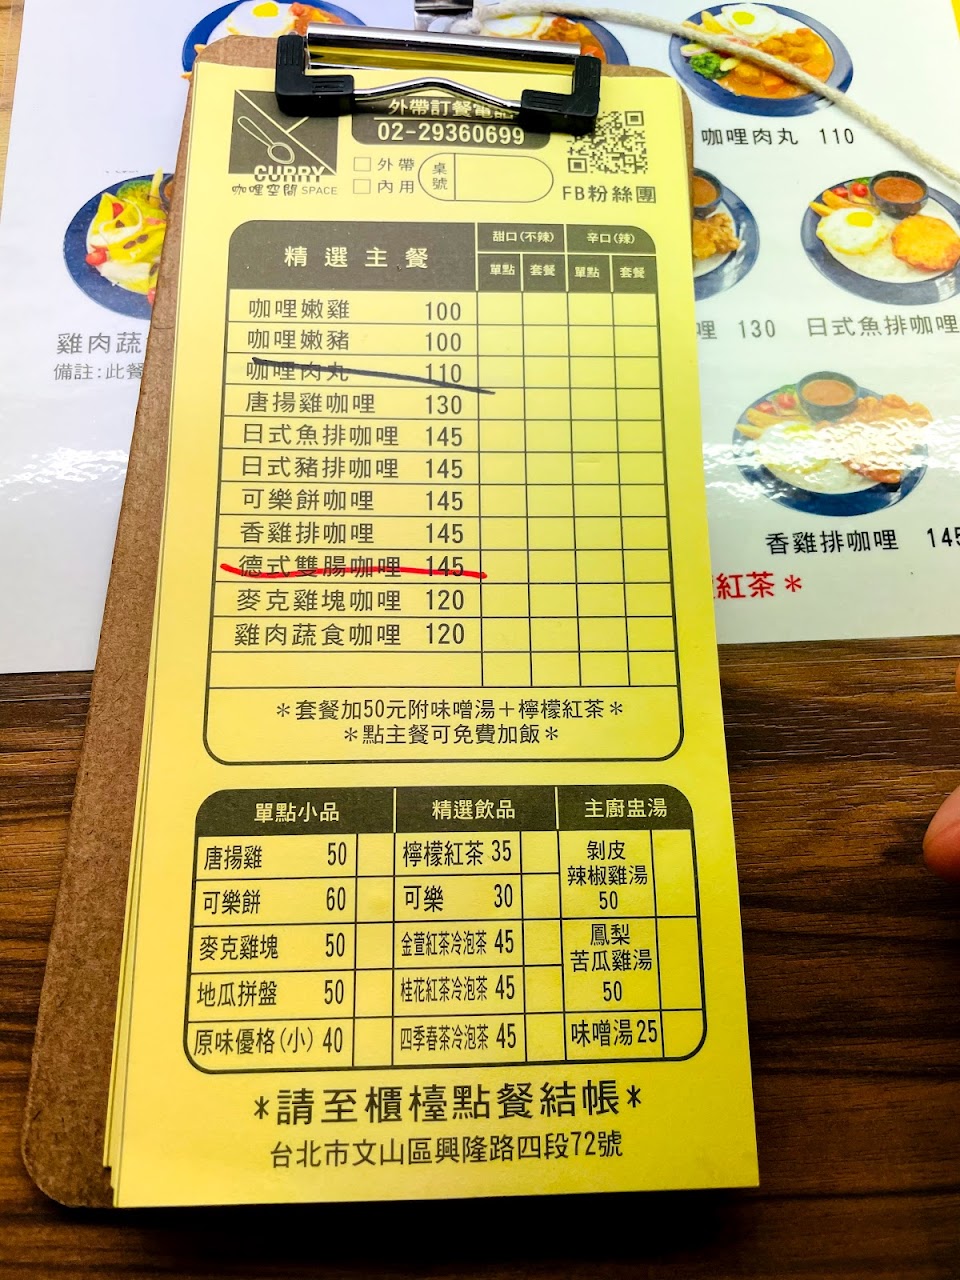 外帶訂餐電話
02-29360699
CURRY
咖哩空間 SPACE
外帶
內用
桌號
FB粉絲團
精選主餐
甜口(不辣) 辛口(辣)
單點 套餐 單點 套餐
咖哩嫩雞 100
咖哩嫩豬 100
咖哩肉丸 110
唐揚雞咖哩 130
日式魚排咖哩 145
日式豬排咖哩 145
可樂餅咖哩 145
香雞排咖哩 145
德式雙腸咖哩 145
麥克雞塊咖哩 120
雞肉蔬食咖哩 120
*套餐加50元附味噌湯+檸檬紅茶*
*點主餐可免費加飯*
單點小品
唐揚雞 50
可樂餅 60
麥克雞塊 50
地瓜拼盤 50
原味優格(小) 40
精選飲品
檸檬紅茶 35
可樂 30
金萱紅茶冷泡茶 45
桂花紅茶冷泡茶 45
四季春茶冷泡茶 45
主廚盅湯
剝皮
辣椒雞湯
50
鳳梨
苦瓜雞湯
50
味噌湯 25
*請至櫃檯點餐結帳*
台北市文山區興隆路四段72號
咖哩肉丸 110
雞肉蔬
備註:此餐
哩 130
日式魚排咖哩
香雞排咖哩 145
紅茶*